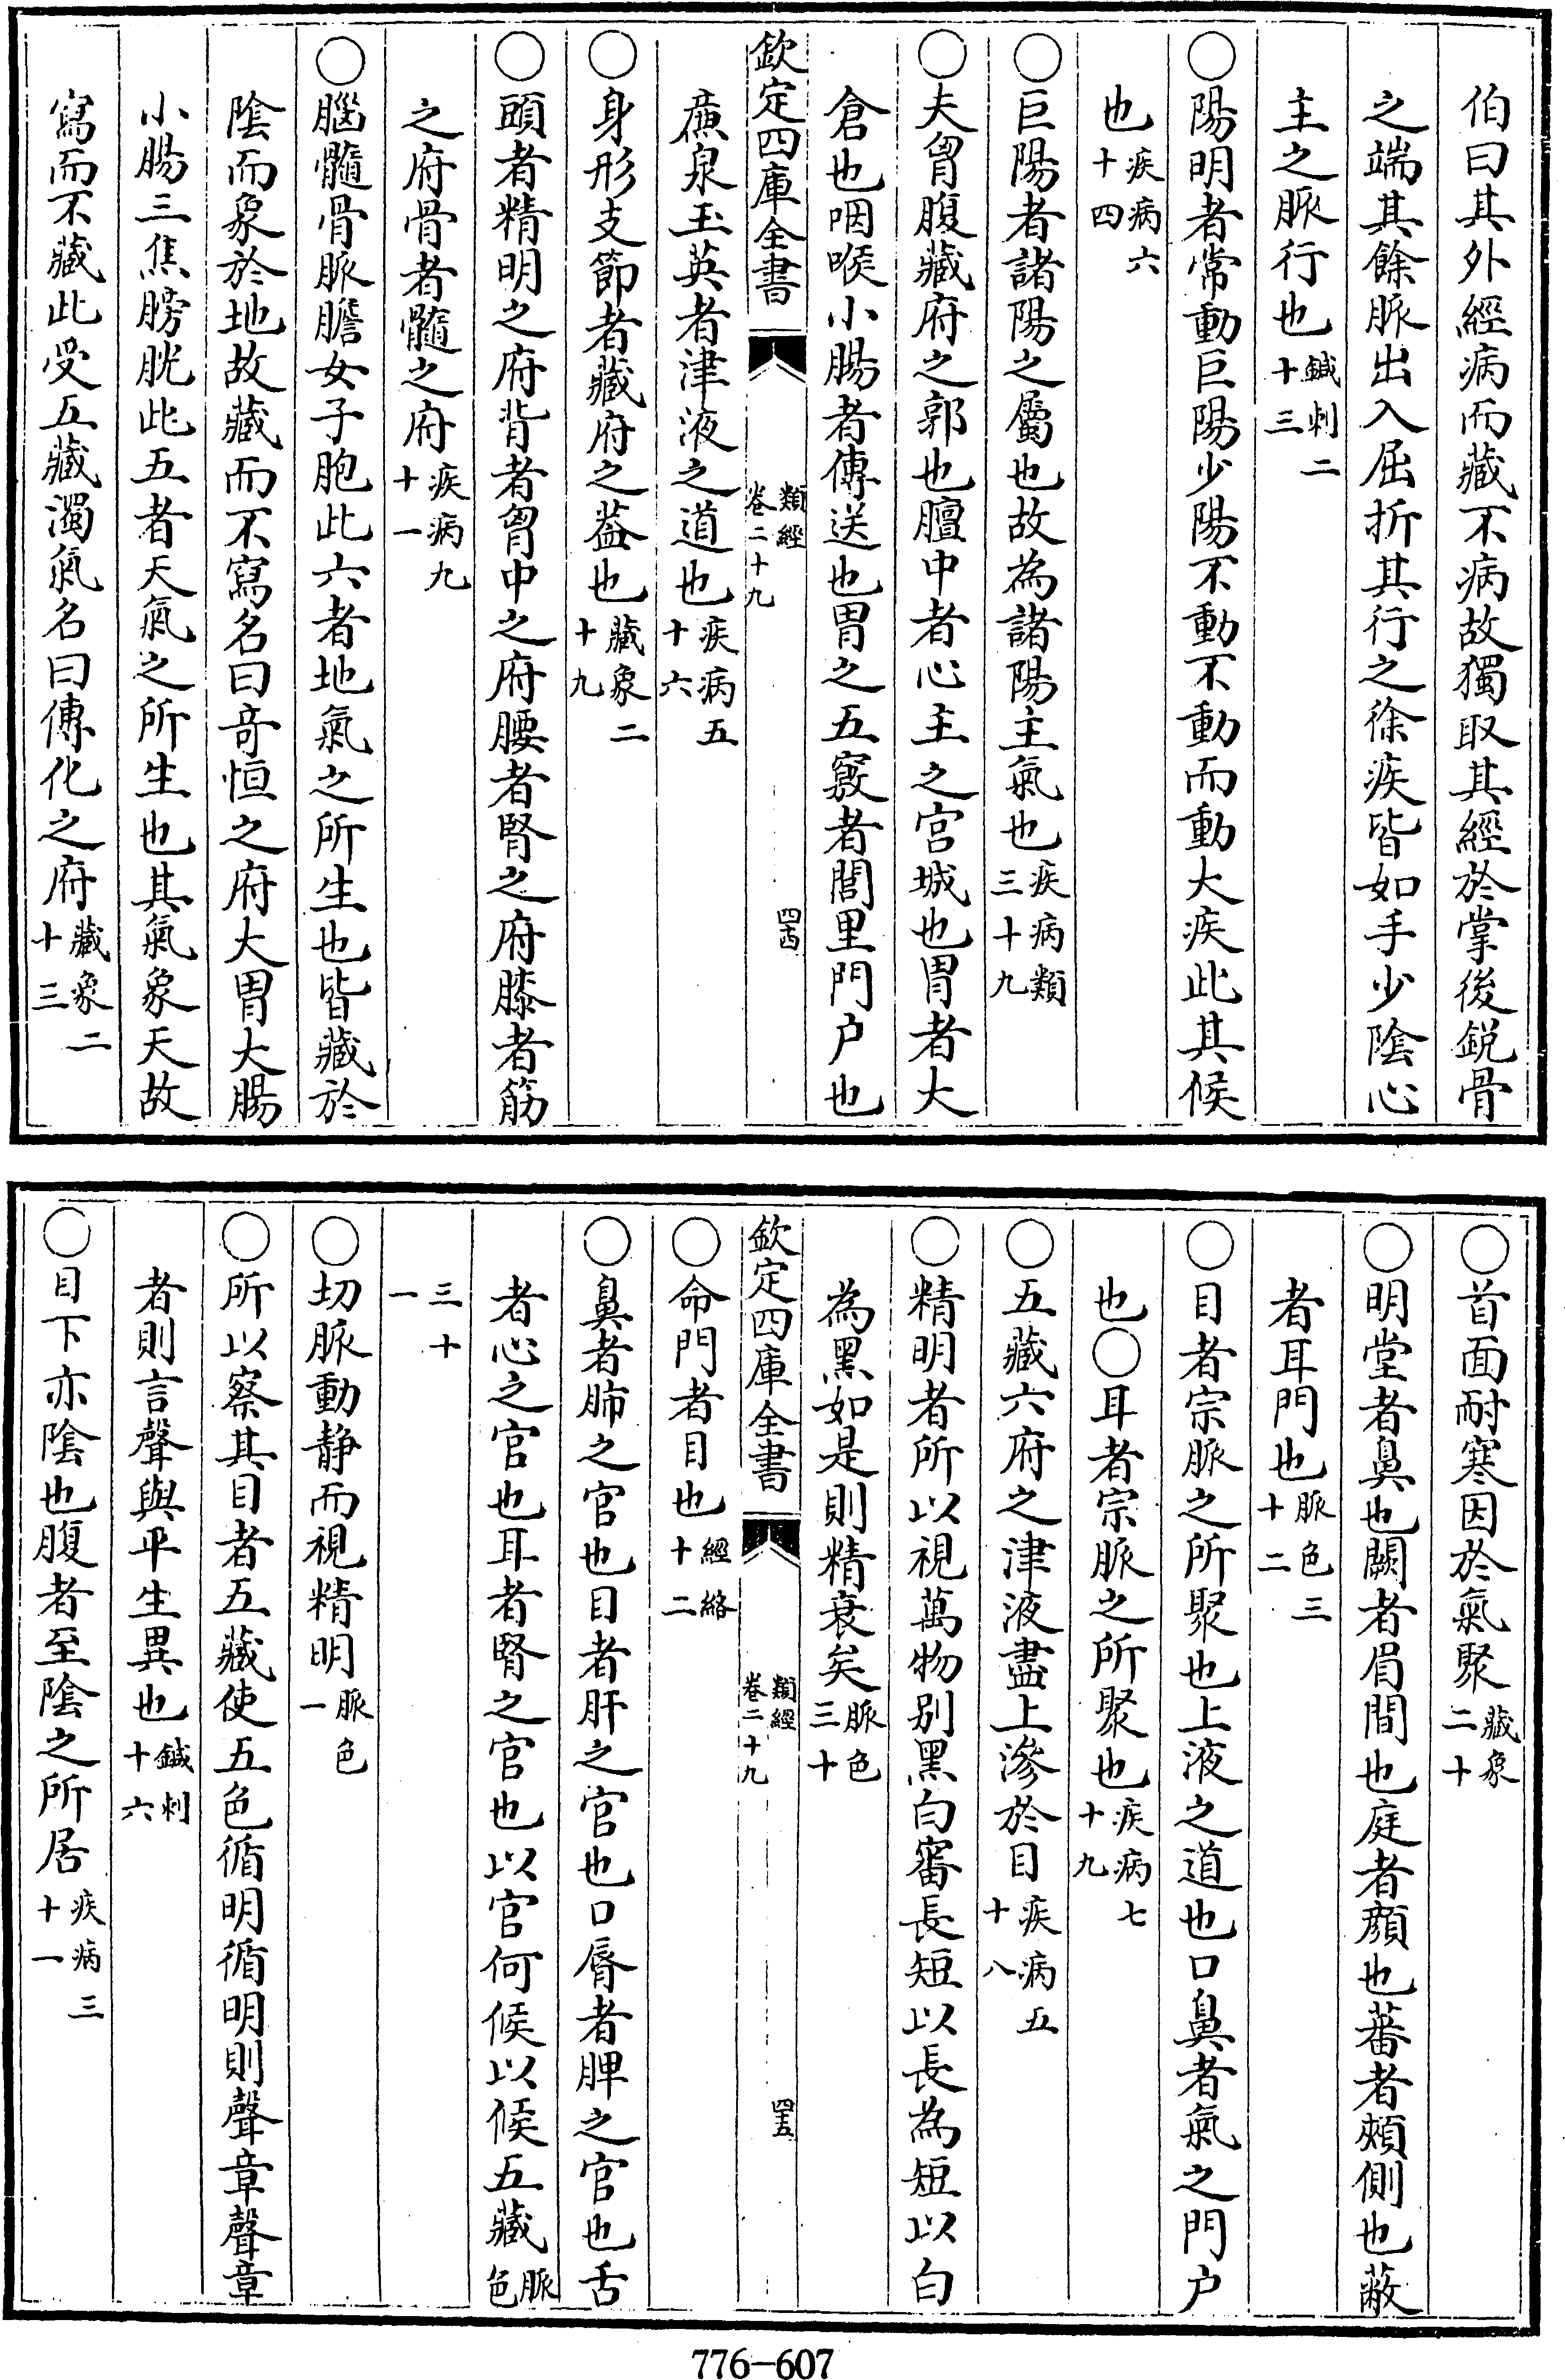 伯曰其外經病而藏不病故獨取其經於掌後鋭骨
之端其餘脈出入屈折其行之徐疾皆如手少陰心
主之脈行也鍼刺二十三
○陽明者常動巨陽少陽不動不動而動大疾此其候
也疾病六十四
○巨陽者諸陽之屬也故為諸陽主氣也疾病類三十九
○夫胷腹藏府之郭也膻中者心主之宫城也胃者大
倉也咽喉小腸者傳送也胃之五竅者閭里門户也
欽定四庫全書 類經卷二十九 四十四
廉泉玉英者津液之道也疾病五十六
○身形支節者藏府之葢也藏象二十九
○頭者精明之府背者胷中之府腰者腎之府膝者筋
之府骨者髓之府疾病九十一
○腦髓骨脈膽女子胞此六者地氣之所生也皆藏於
陰而象於地故藏而不寫名曰竒恒之府大胃大腸
小腸三焦膀胱此五者天氣之所生也其氣象天故
寫而不藏此受五藏濁氣名曰傳化之府藏象二十三
○首面耐寒因於氣聚藏象二十
○明堂者鼻也闕者眉間也庭者顔也蕃者頰側也蔽
者耳門也脈色三十二
○目者宗脈之所聚也上液之道也口鼻者氣之門户
也○耳者宗脈之所聚也疾病七十九
○五藏六府之津液盡上滲於目疾病五十八
○精明者所以視萬物别黑白審長短以長為短以白
為黑如是則精衰矣脈色三十
欽定四庫全書 類經卷二十九 四十五
○命門者目也經絡十二
○鼻者肺之官也目者肝之官也口脣者脾之官也舌
者心之官也耳者腎之官也以官何候以候五藏脈色
三十一
○切脈動静而視精明脈色一
○所以察其目者五藏使五色循明循明則聲章聲章
者則言聲與平生異也鍼刺十六
○目下亦陰也腹者至陰之所居疾病三十一
776-607